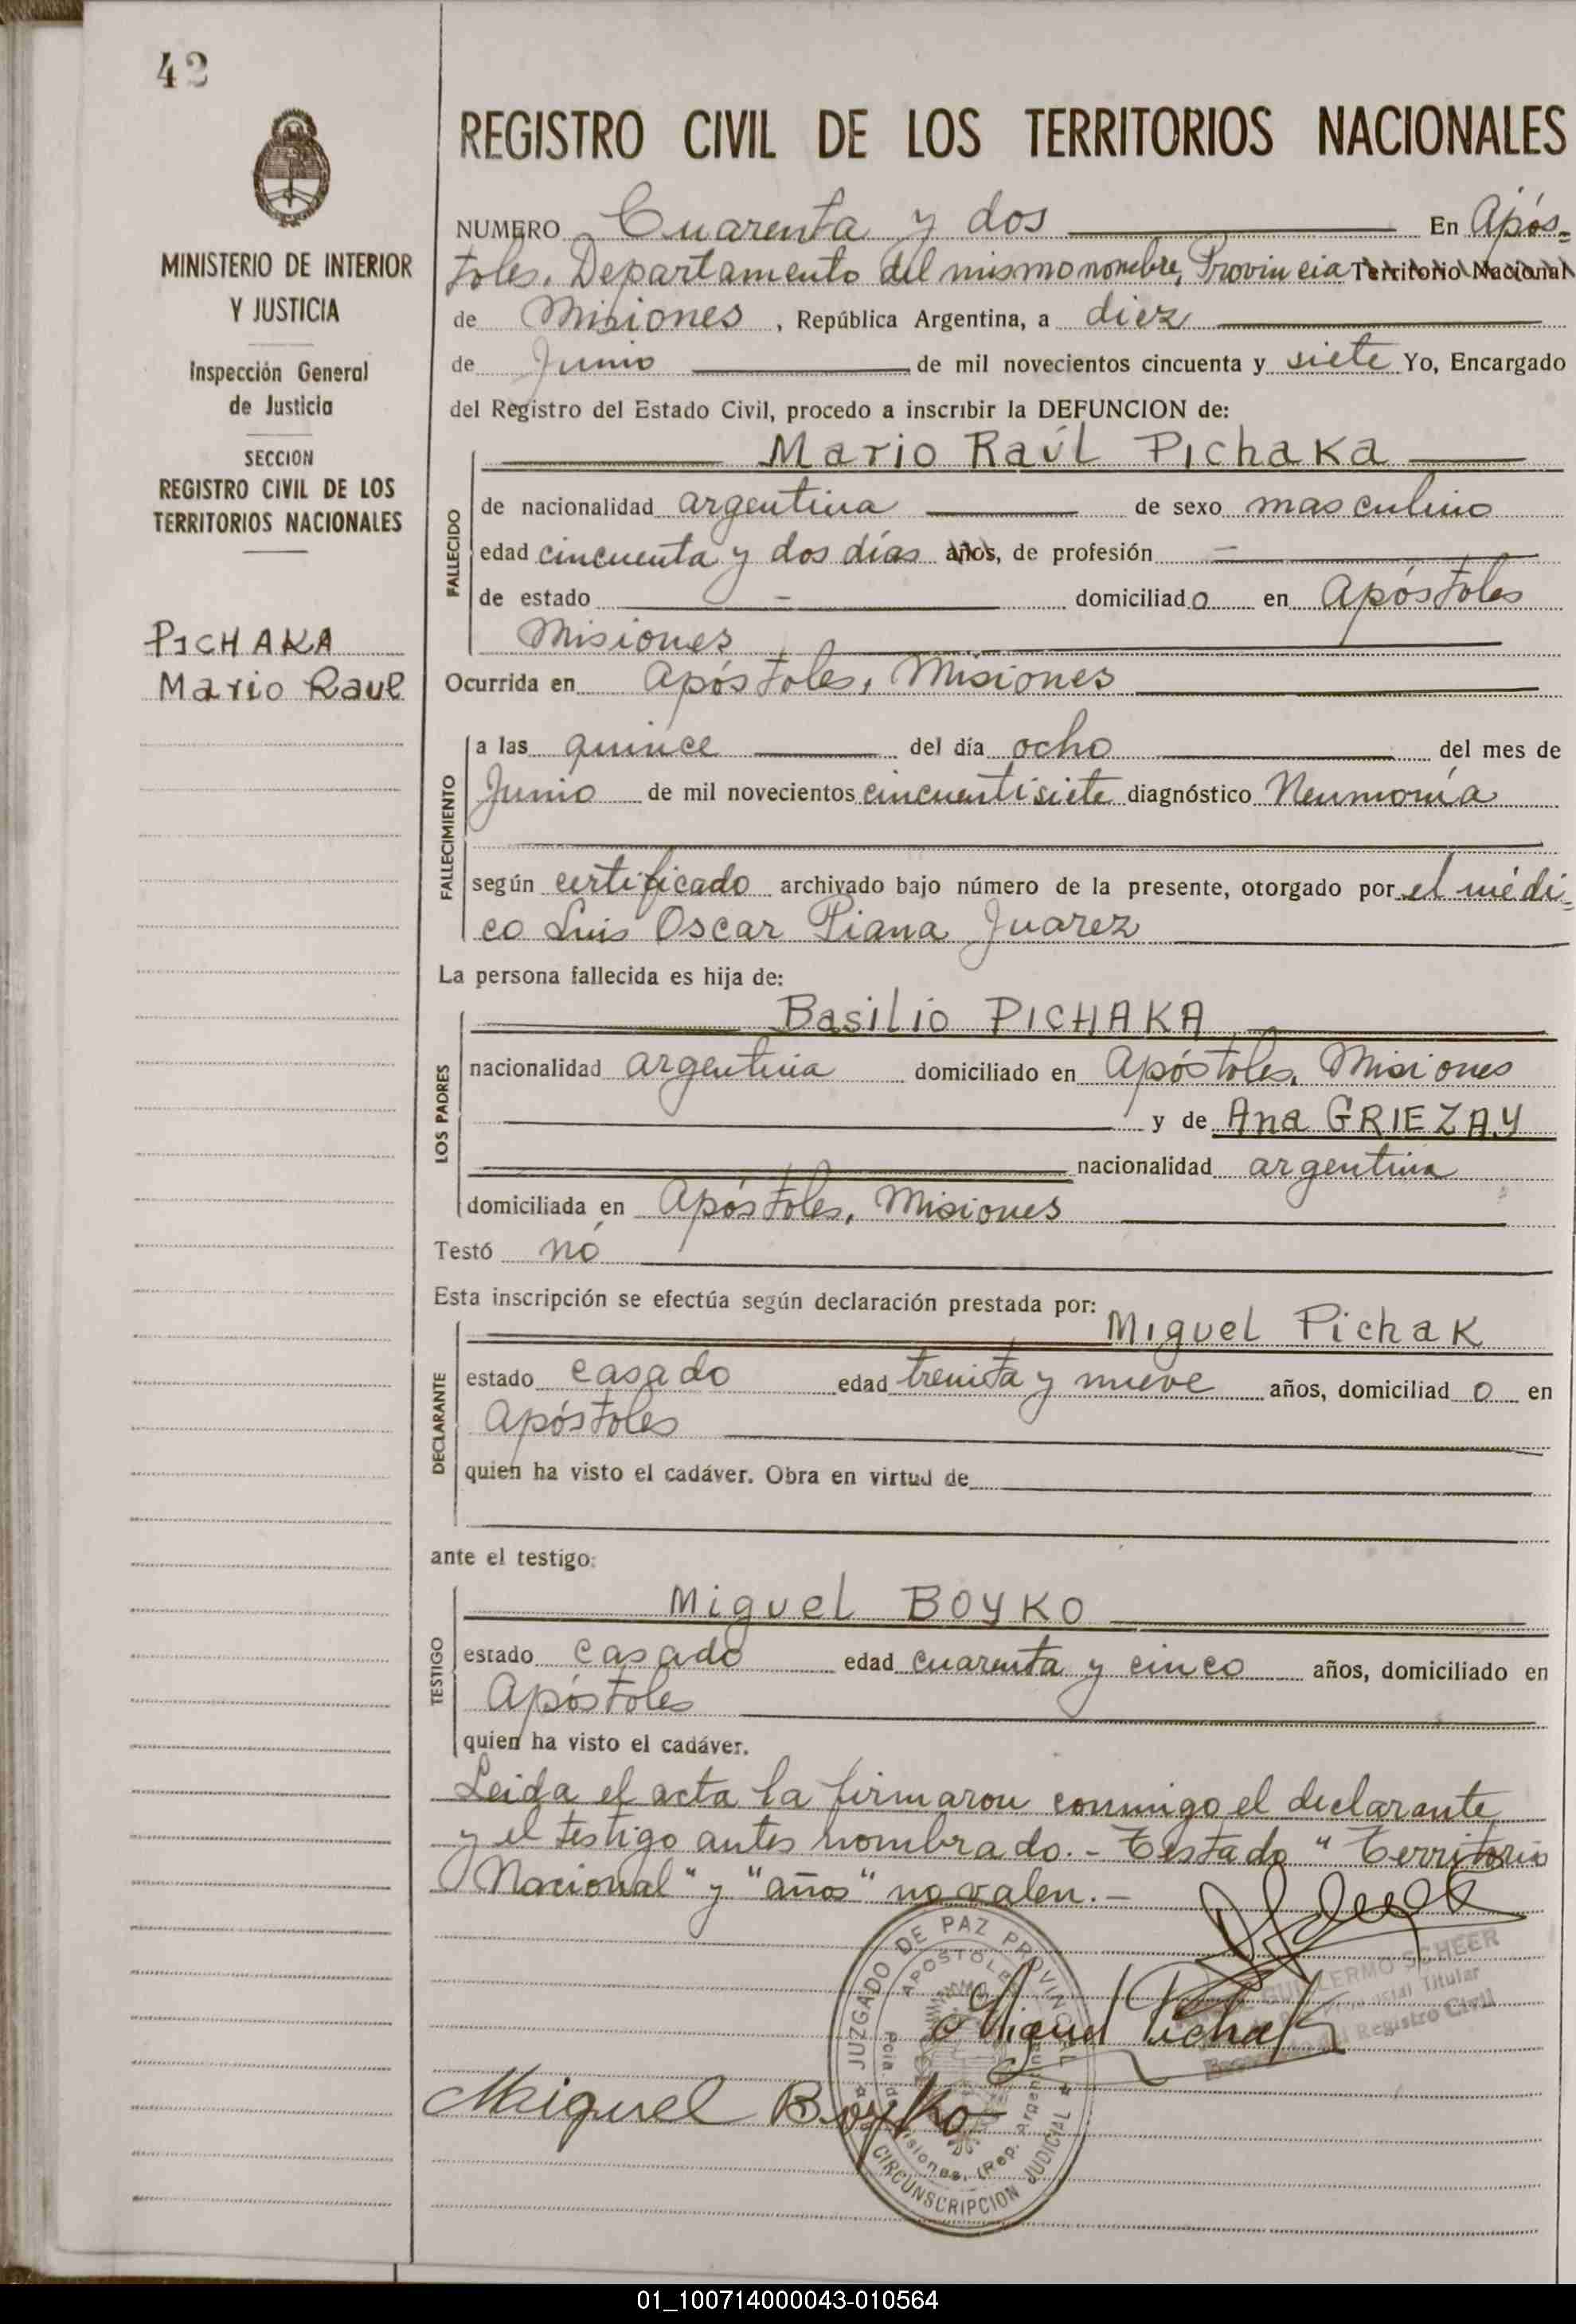 42
MINISTERIO DE INTERIOR
Y JUSTICIA
Inspección General
de Justicia
SECCION
REGISTRO CIVIL DE LOS
TERRITORIOS NACIONALES
PICHAKA
Mario Raul
REGISTRO CIVIL DE LOS TERRITORIOS NACIONALES
NUMERO Cuarenta y dos En Após=
toles, Departamento del mismo nombre, Provincia Territorio Nacional
de Misiones, República Argentina, a diez
de Junio de mil novecientos cincuenta y siete Yo, Encargado
del Registro del Estado Civil, procedo a inscribir la DEFUNCION de:
Mario Raúl Pichaka
FALLECIDO
de nacionalidad argentina de sexo masculino
edad cincuenta y dos días años, de profesión -
de estado - domiciliado en Apóstoles
Misiones
Ocurrida en Apóstoles, Misiones
FALLECIMIENTO
a las quince del día ocho del mes de
Junio de mil novecientos cincuentisiete diagnóstico Neumonía
según certificado archivado bajo número de la presente, otorgado por el médi=
co Luis Oscar Piana Juarez
La persona fallecida es hija de:
LOS PADRES
Basilio PICHAKA
nacionalidad argentina domiciliado en Apóstoles, Misiones
y de Ana GRIEZAY
nacionalidad argentina
domiciliada en Apóstoles, Misiones
Testó no
Esta inscripción se efectúa según declaración prestada por:
DECLARANTE
Miguel Pichak
estado casado edad treinta y nueve años, domiciliado en
Apóstoles
quien ha visto el cadáver. Obra en virtud de
ante el testigo:
TESTIGO
Miguel BOYKO
estado casado edad cuarenta y cinco años, domiciliado en
Apóstoles
quien ha visto el cadáver.
Leida el acta la firmaron conmigo el declarante
y el testigo antes nombrado.- Testado "Territorio
Nacional" y "años" no valen.-
JUZGADO DE PAZ PROVINCIAL
APOSTOLES
Pcia. de Misiones, (Rep. Argentina)
CIRCUNSCRIPCION JUDICIAL
GUILLERMO SCHEER
Titular
Registro Civil
Miguel Pichak
Miguel Boyko
01_100714000043-010564